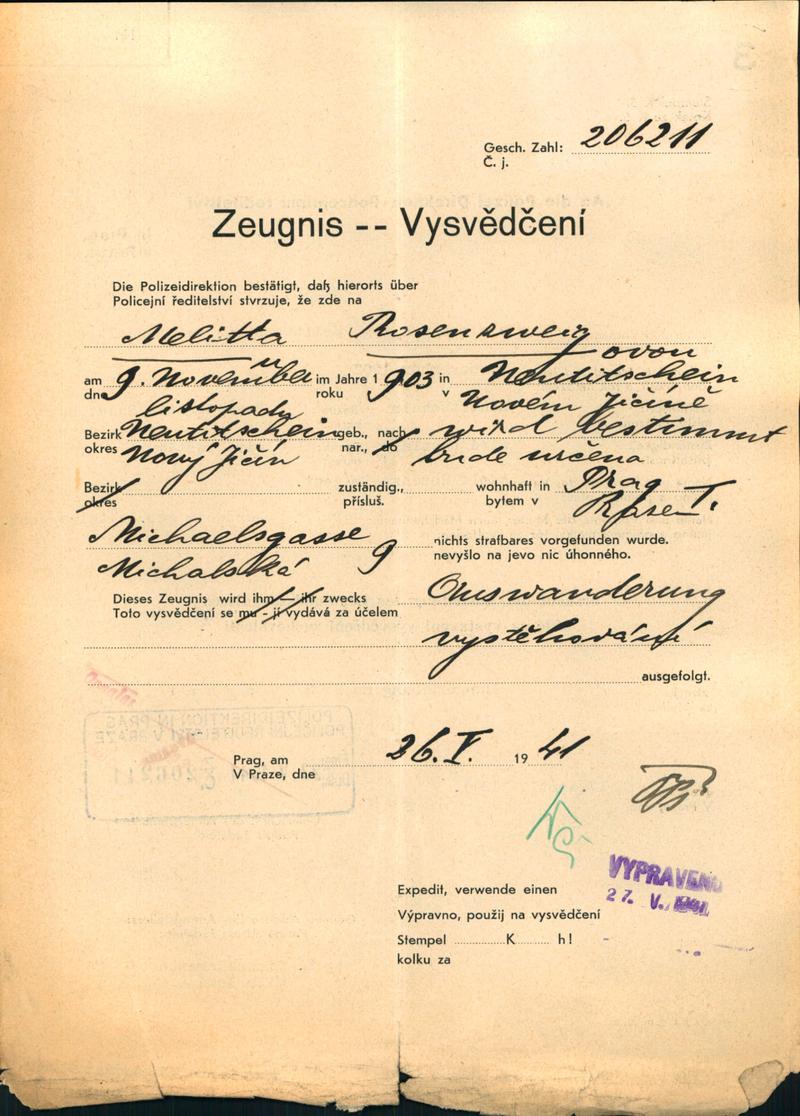 Gesch. Zahl: 206211
Č. j.
Zeugnis -- Vysvědčení
Die Polizeidirektion bestätigt, daß hierorts über
Policejní ředitelství stvrzuje, že zde na
Melitta Rosenzweig
ovou
am 9. November im Jahre 1903 in Neutitschein
dne listopadu roku v Novém Jičíně
Bezirk Neutitschein geb., nach wird bestimmt
okres Nový Jičín nar., do bude určena
Bezirk zuständig., wohnhaft in Prag I.
okres přísluš. bytem v Praze
Michaelsgasse 9 nichts strafbares vorgefunden wurde.
Michalská nevyšlo na jevo nic úhonného.
Dieses Zeugnis wird ihm — ihr zwecks Auswanderung
Toto vysvědčení se mu - jí vydává za účelem
vystěhování
ausgefolgt.
Prag, am 26. V. 1941
V Praze, dne
VYPRAVENO
27. V. 1941
Expedit, verwende einen
Výpravno, použij na vysvědčení
Stempel K h!
kolku za